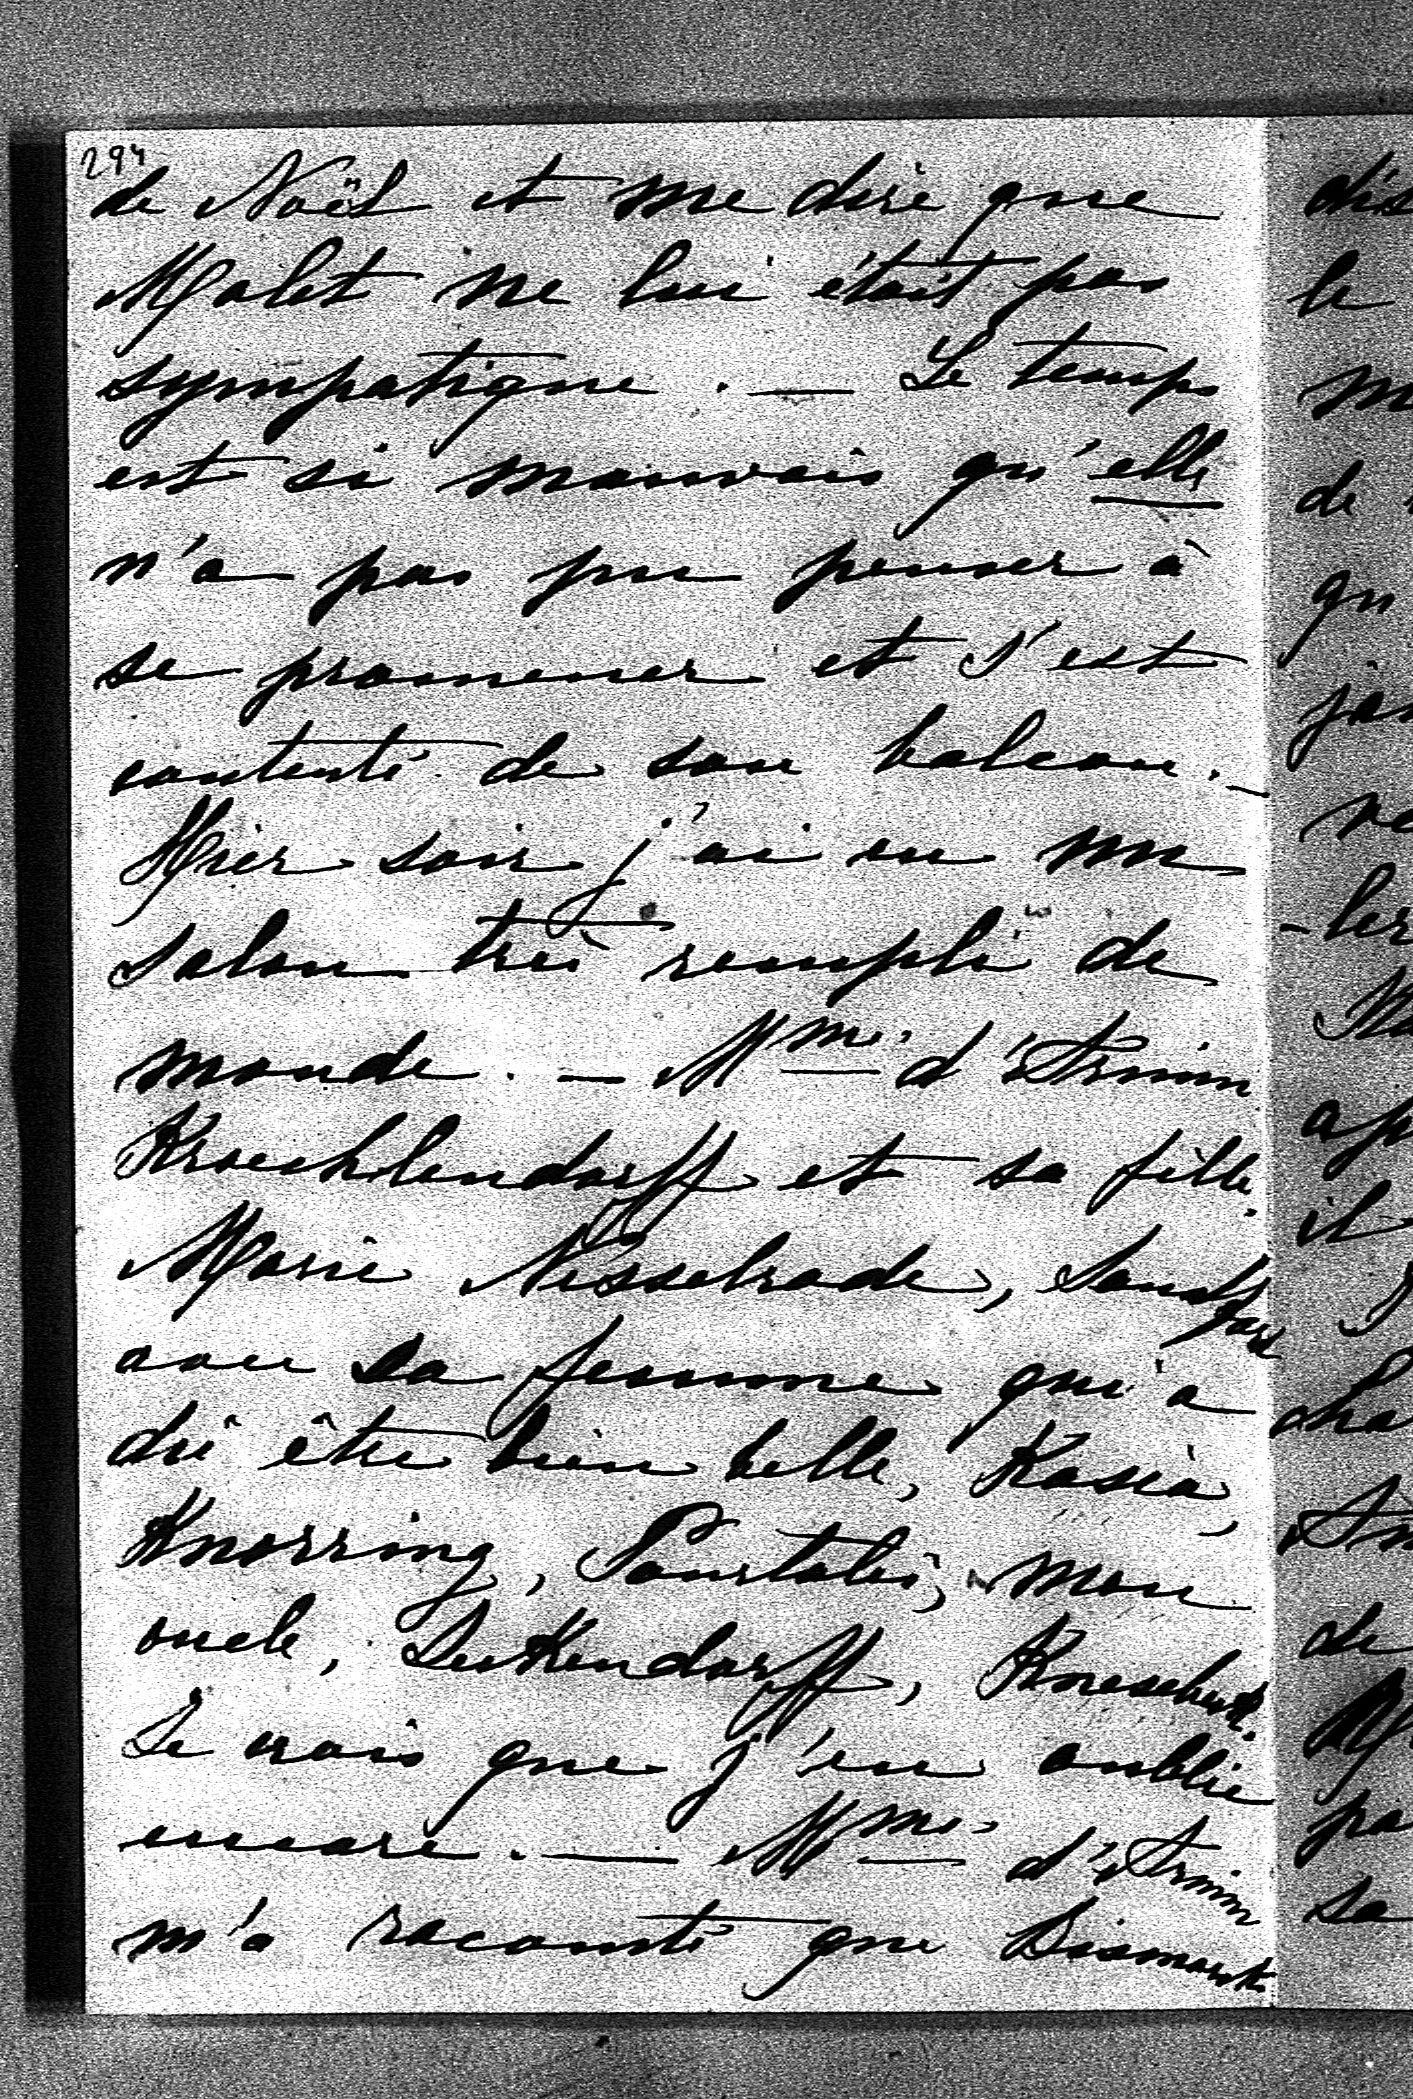 294
de Noël et me dire que
Malet ne lui était pas
sympatique. — Le temps
est si mauvais qu'elle
n'a pas pu penser à
se promener et s'est
contenté de son balcon. —
Hier soir j'ai eu un
salon très rempli de
monde. — Mme d'Arnim
Kroechlendorff et sa fille
Marie Nesselrode,
avec sa femme qui a
dû être bien belle, Kasia,
Knorring, Pourtalès, mon
oncle, Sekendorff, Knesebeck.
Je crois que j'en oublie
encore. — Mme d'Arnim
m'a raconté que Bismarck